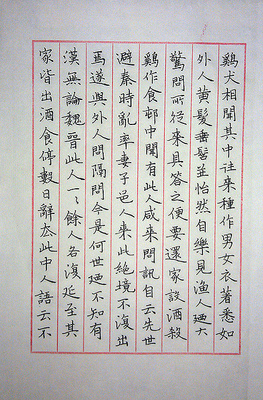 鷄犬相聞其中往來種作男女衣著悉如
外人黃髮垂髫並怡然自樂見漁人廼大
驚問所從來具答之便要還家設酒殺
鷄作食邨中聞有此人咸來問訊自云先世
避秦時亂率妻子邑人來此絕境不復出
焉遂與外人間隔問今是何世廼不知有
漢無論魏晉此人一一餘人各復延至其
家皆出酒食停數日辭去此中人語云不